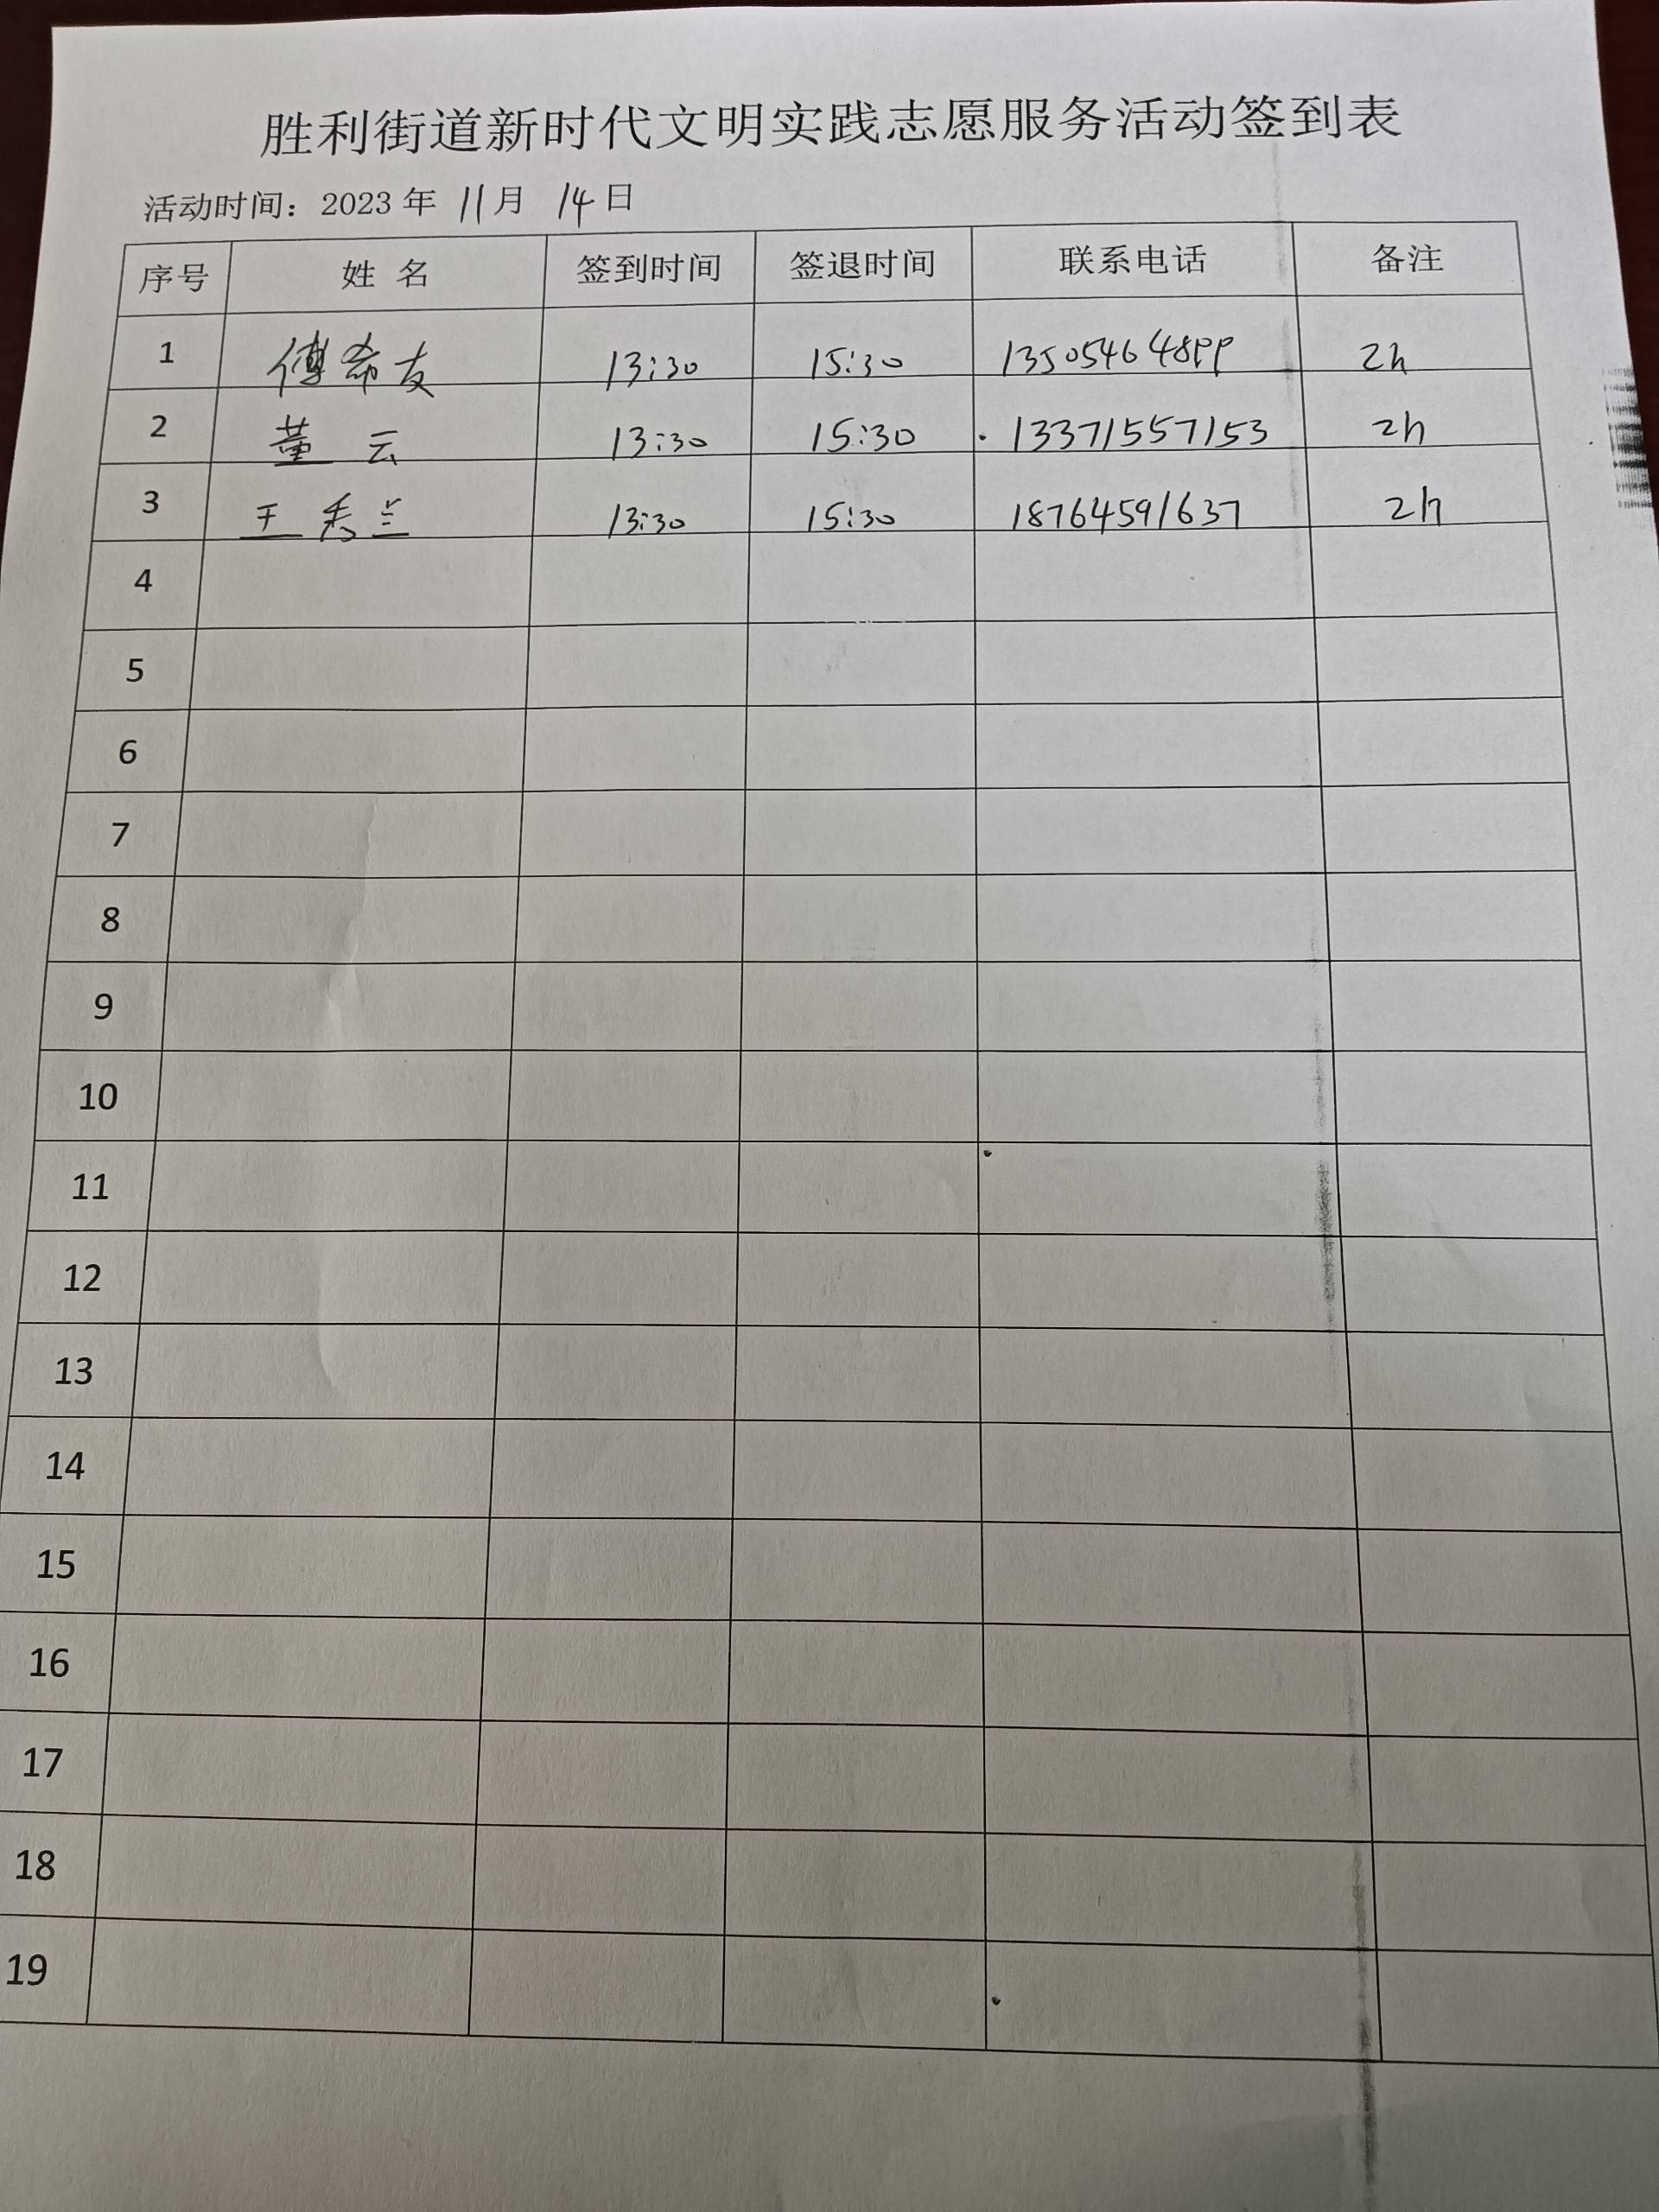 胜利街道新时代文明实践志愿服务活动签到表
活动时间：2023 年 11 月 14 日
序号 姓 名 签到时间 签退时间 联系电话 备注
1 傅希友 13:30 15:30 13505464899 2h
2 董云 13:30 15:30 13371557153 2h
3 王秀兰 13:30 15:30 18764591637 2h
4
5
6
7
8
9
10
11
12
13
14
15
16
17
18
19